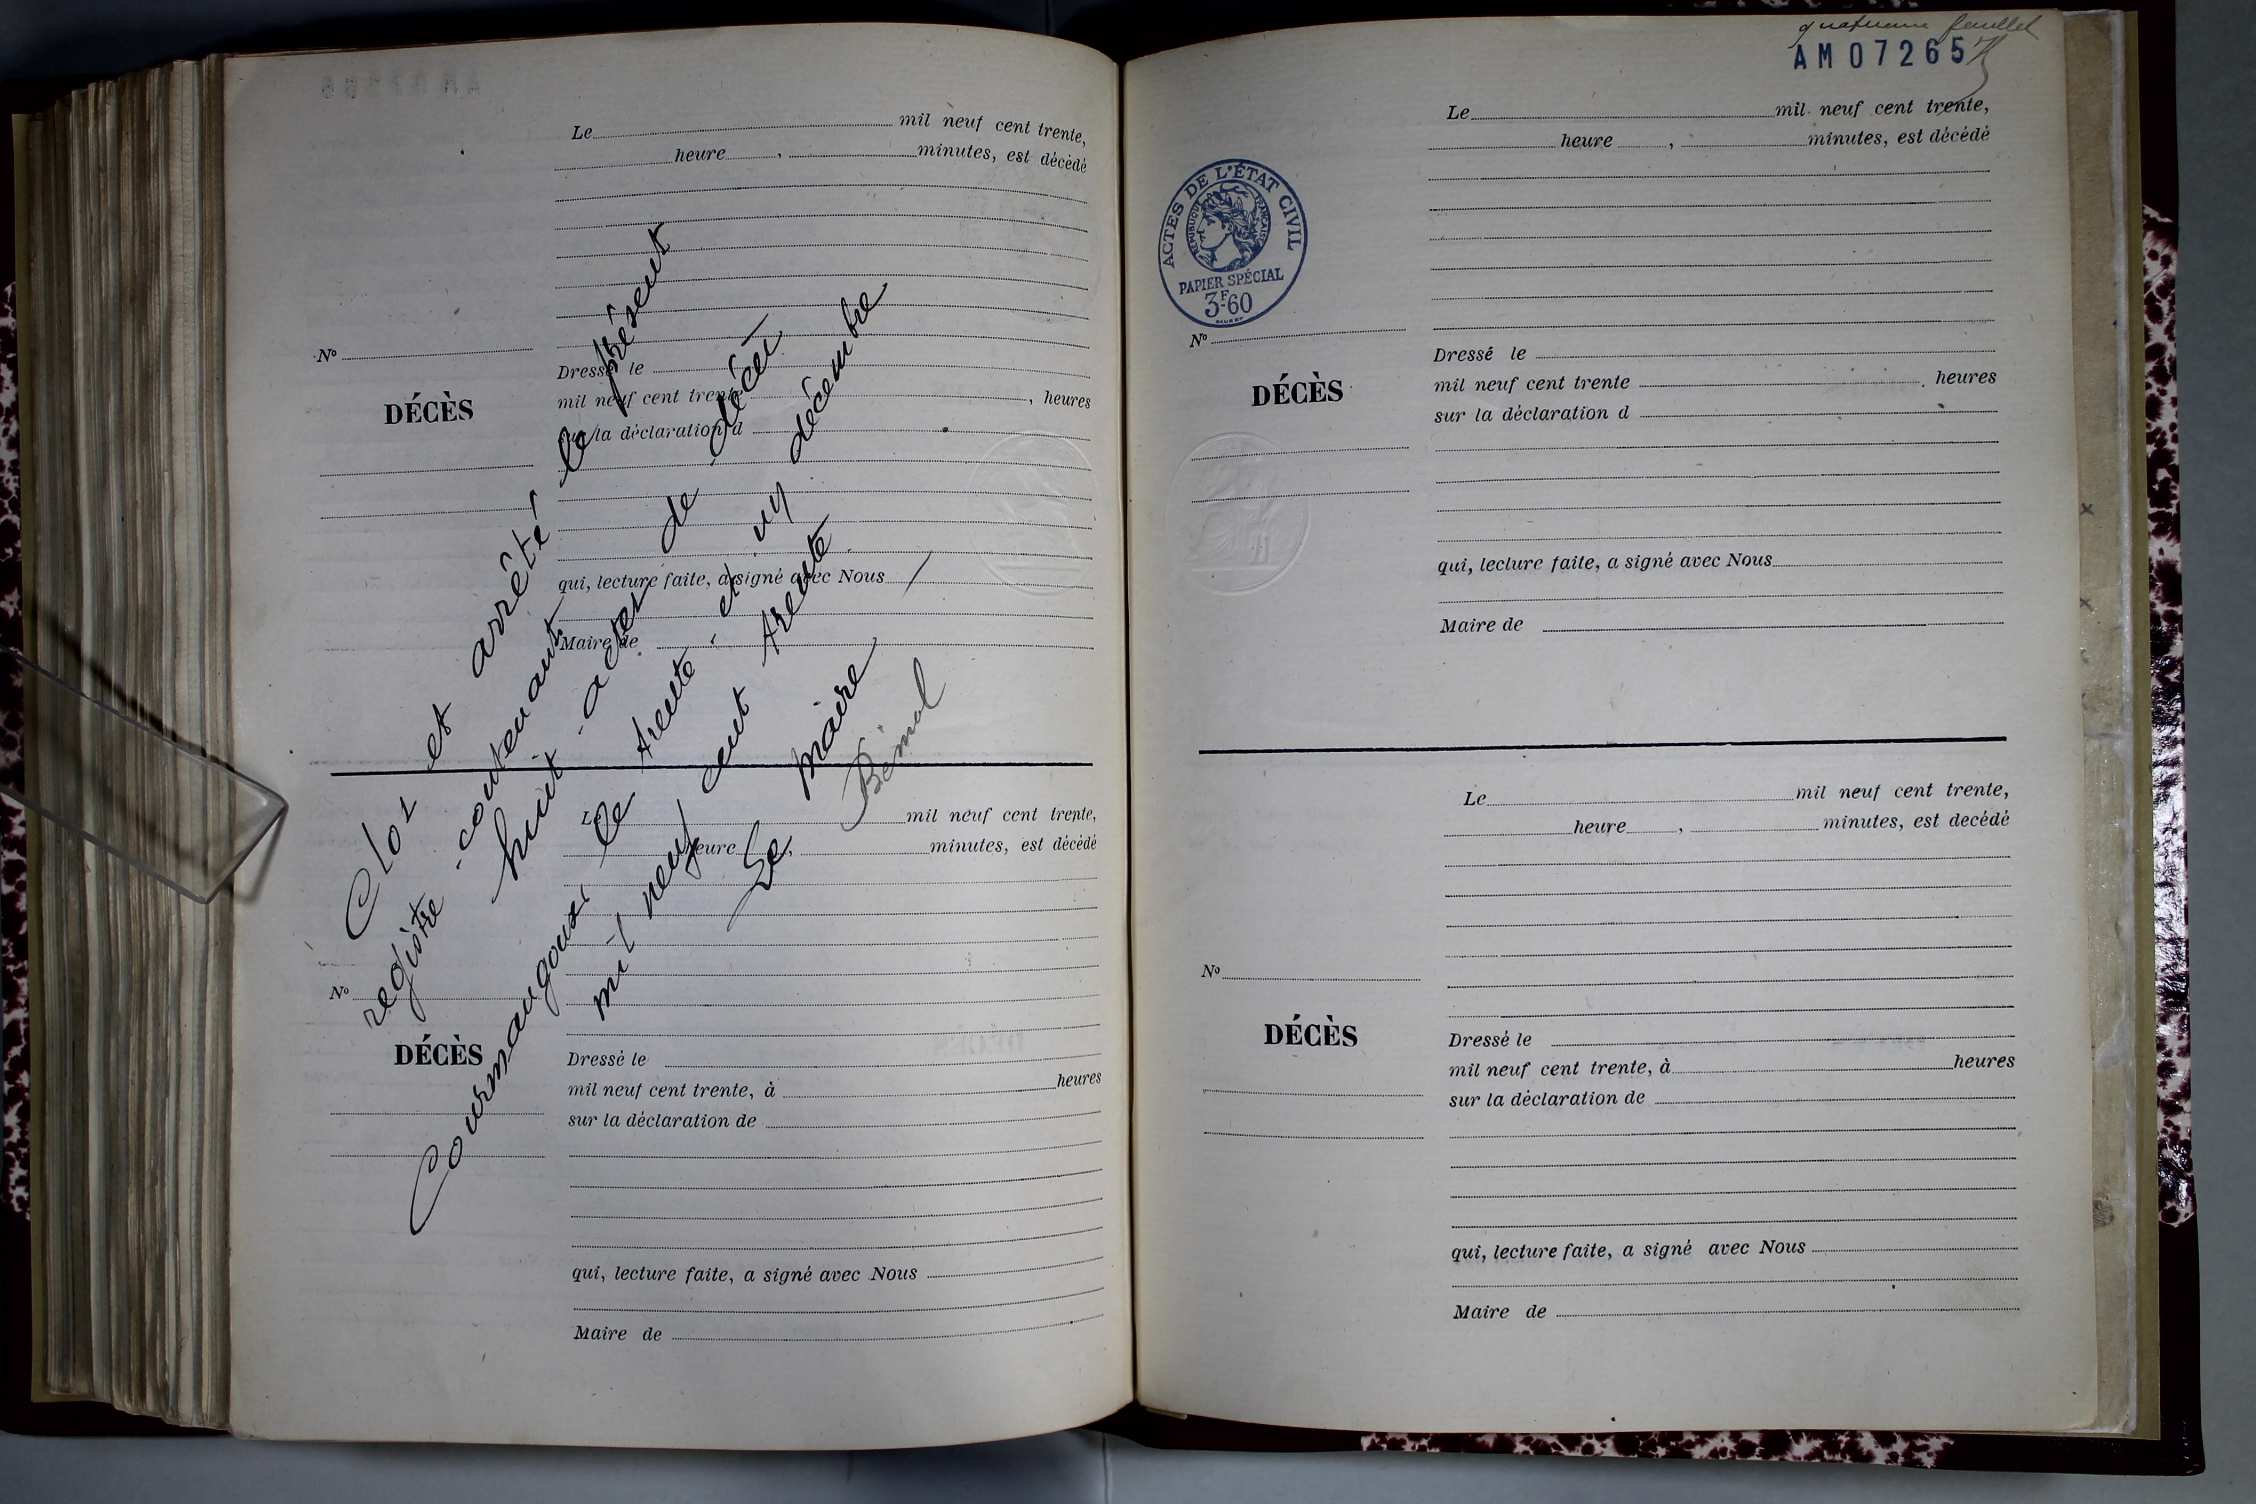 Le mil neuf cent trente,
heure , minutes, est décédé
No
DÉCÈS
Dressé le
mil neuf cent trente , heures
sur la déclaration d
qui, lecture faite, a signé avec Nous
Maire de
Clos et arrêté le présent
registre contenant
huit actes de décès
Courmangoux le trente et un décembre
mil neuf cent trente
Le Maire
Le mil neuf cent trente,
heure , minutes, est décédé
No
DÉCÈS
Dressé le
mil neuf cent trente, à heures
sur la déclaration de
qui, lecture faite, a signé avec Nous
Maire de
feuillet
AM07265
Le mil neuf cent trente,
heure , minutes, est décédé
ACTES DE L'ÉTAT CIVIL
RÉPUBLIQUE FRANÇAISE
PAPIER SPÉCIAL
3F60
No
DÉCÈS
Dressé le
mil neuf cent trente , heures
sur la déclaration d
qui, lecture faite, a signé avec Nous
Maire de
Le mil neuf cent trente,
heure , minutes, est decédé
No
DÉCÈS
Dressé le
mil neuf cent trente, à heures
sur la déclaration de
qui, lecture faite, a signé avec Nous
Maire de